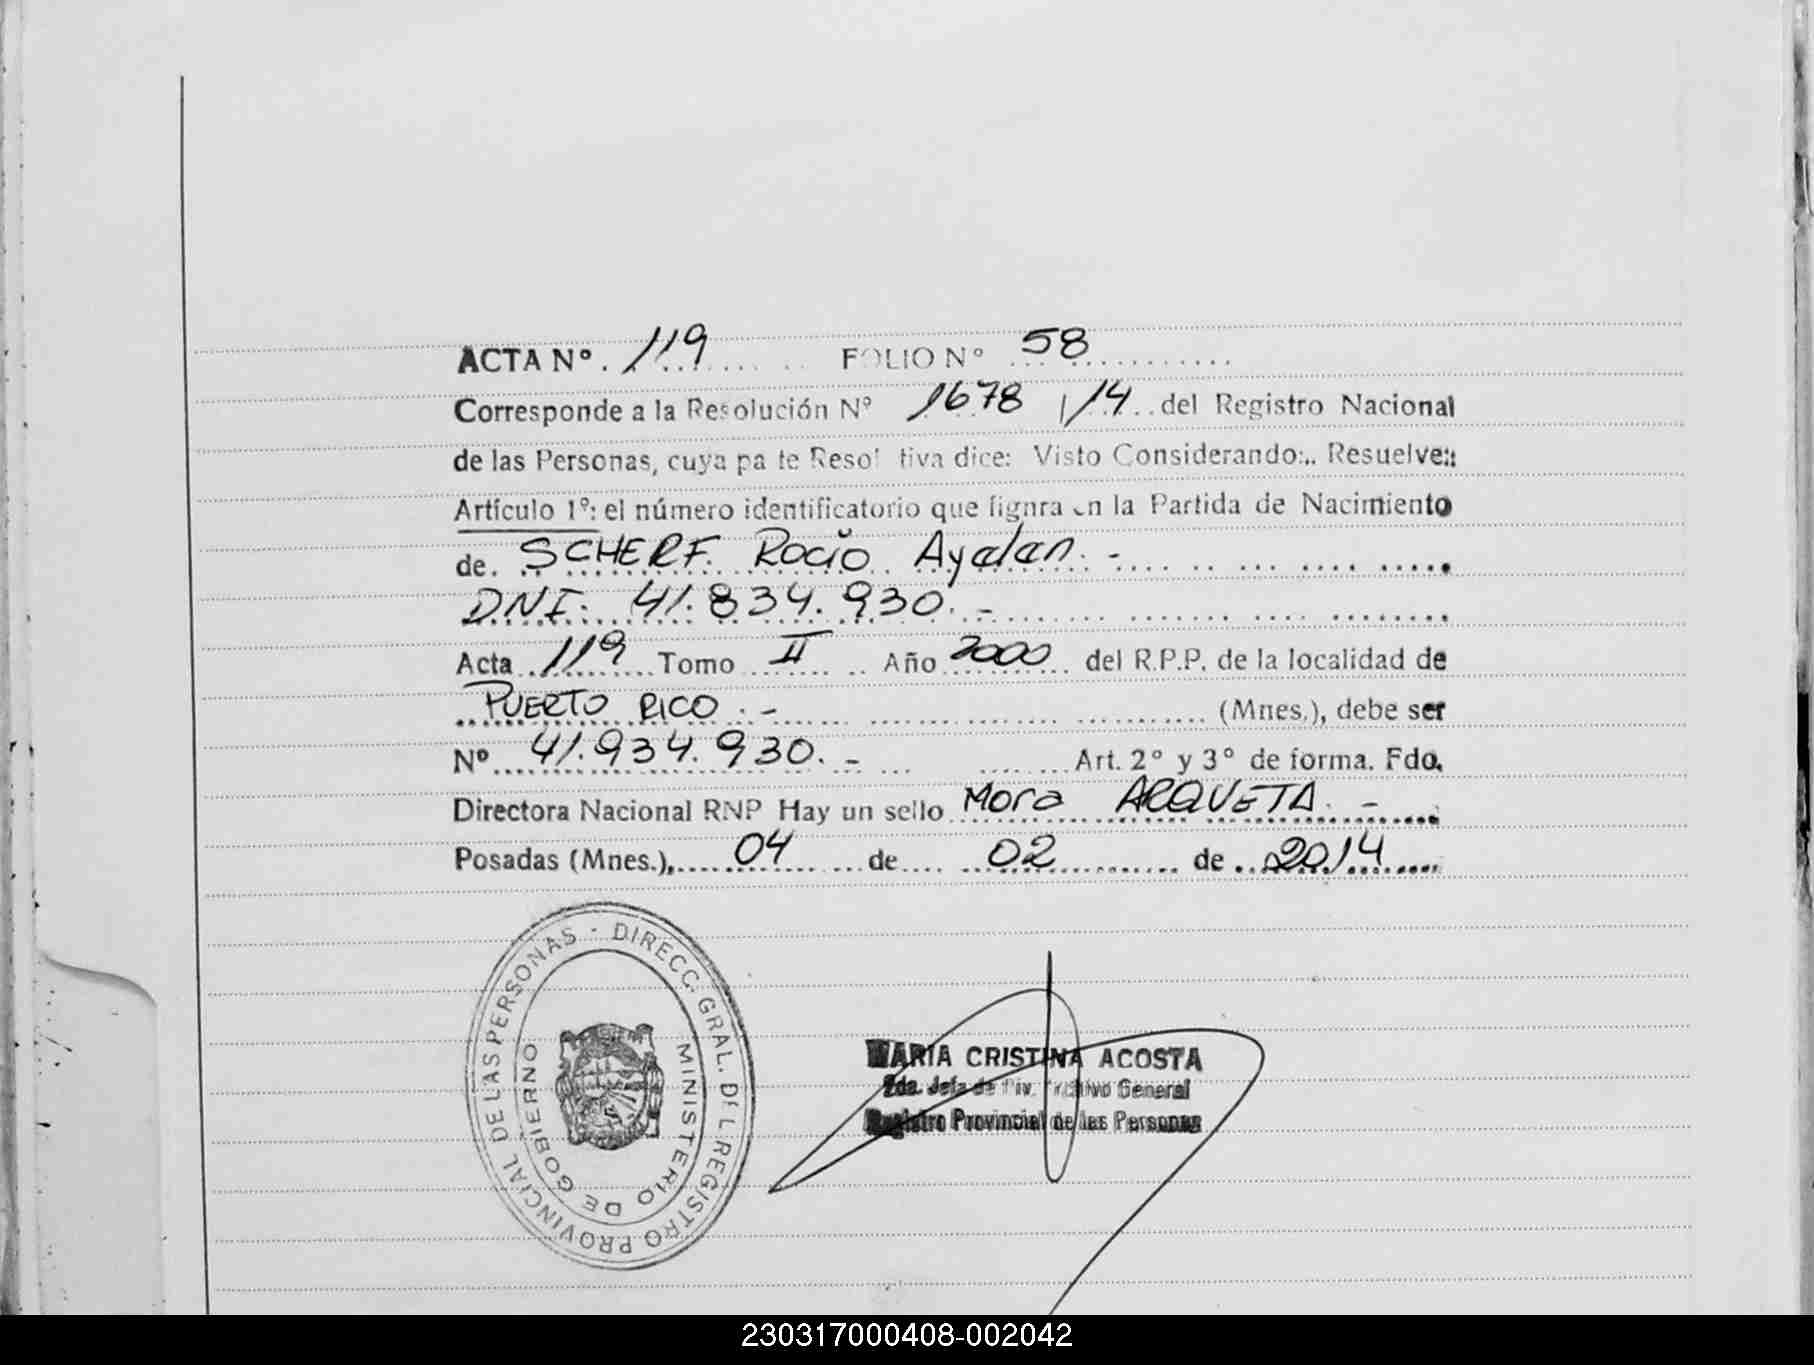 ACTA Nº. 119 FOLIO Nº 58
Corresponde a la Resolución Nº 1678 /14 del Registro Nacional
de las Personas, cuya pa te Resol tiva dice: Visto Considerando:.. Resuelve::
Artículo 1º: el número identificatorio que fignra en la Partida de Nacimiento
de. SCHERF. Rocío Ayelen. -
DNI. 41.834.930. -
Acta 119 Tomo II Año 2000 del R.P.P. de la localidad de
PUERTO RICO. - (Mnes.), debe ser
Nº 41.934.930. - Art. 2º y 3º de forma. Fdo.
Directora Nacional RNP Hay un sello Mora ARQUETA. -
Posadas (Mnes.), 04 de 02 de 2014
DIRECC. GRAL. DEL REGISTRO PROVINCIAL DE LAS PERSONAS -
MINISTERIO DE GOBIERNO
MARIA CRISTINA ACOSTA
2da. Jefa de Div. Archivo General
Registro Provincial de las Personas
230317000408-002042